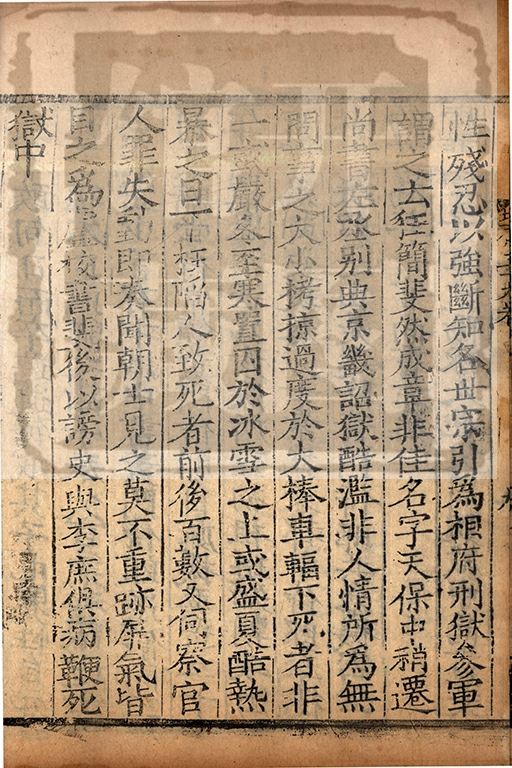 性殘忍以強斷知名世宗引為相府刑獄參軍
謂之云狂簡斐然成章非佳名字天保中稍遷
尚書左丞別典京畿詔獄酷濫非人情所為無
問事之大小栲掠過度於大棒車輻下死者非
一或嚴冬至寒置囚於冰雪之上或盛夏酷熱
暴之日下枉陷人致死者前後百數又伺察官
人罪失動即奏聞朝士見之莫不重跡屏氣皆
目之為盧校書斐後以謗史與李庶俱病鞭死
獄中